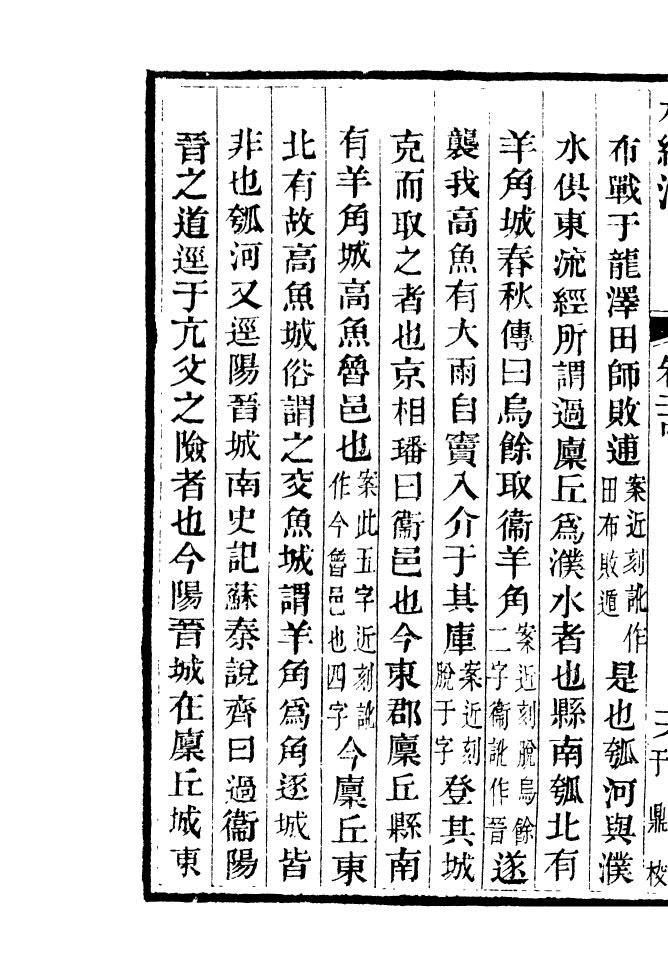 水經注 卷二
布戰于龍澤田師敗逋案近刻訛作田布敗遁是也瓠河與濮
水俱東流經所謂過廩丘爲濮水者也縣南瓠北有
羊角城春秋傳曰烏餘取衞羊角案近刻脫烏餘二字衞訛作晉遂
襲我高魚有大雨自竇入介于其庫案近刻脫于字登其城
克而取之者也京相璠曰衞邑也今東郡廩丘縣南
有羊角城高魚魯邑也案此五字近刻訛作今魯邑也四字今廩丘東
北有故高魚城俗謂之交魚城謂羊角爲角逐城皆
非也瓠河又逕陽晉城南史記蘇秦說齊曰過衞陽
晉之道逕于亢父之險者也今陽晉城在廩丘城東